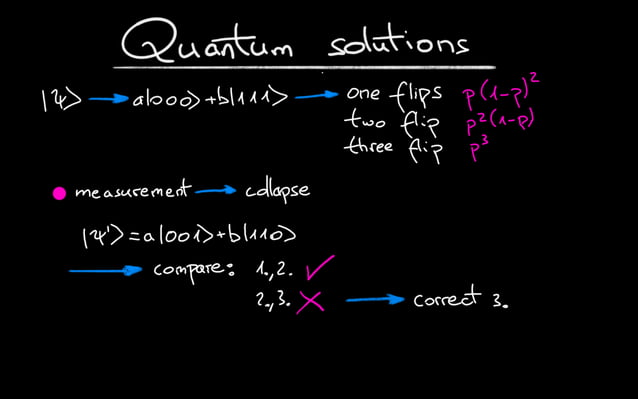 Quantum solutions
|Ψ⟩ → a|000⟩+b|111⟩ → one flips p(1-p)²
two flip p²(1-p)
three flip p³
measurement → collapse
|Ψ'⟩=a|001⟩+b|110⟩
→ compare: 1.,2. ✓
2.,3. ✗ → correct 3.